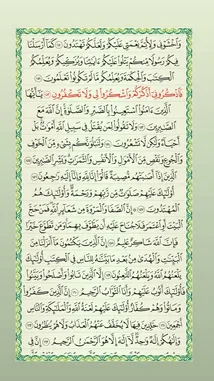 وَٱخْشَوْنِى وَلِأُتِمَّ نِعْمَتِى عَلَيْكُمْ وَلَعَلَّكُمْ تَهْتَدُونَ ۝ كَمَآ أَرْسَلْنَا
فِيكُمْ رَسُولًا مِّنكُمْ يَتْلُوا۟ عَلَيْكُمْ ءَايَٰتِنَا وَيُزَكِّيكُمْ وَيُعَلِّمُكُمُ
ٱلْكِتَٰبَ وَٱلْحِكْمَةَ وَيُعَلِّمُكُم مَّا لَمْ تَكُونُوا۟ تَعْلَمُونَ ۝
فَٱذْكُرُونِىٓ أَذْكُرْكُمْ وَٱشْكُرُوا۟ لِى وَلَا تَكْفُرُونِ ۝ يَٰٓأَيُّهَا
ٱلَّذِينَ ءَامَنُوا۟ ٱسْتَعِينُوا۟ بِٱلصَّبْرِ وَٱلصَّلَوٰةِ إِنَّ ٱللَّهَ مَعَ
ٱلصَّٰبِرِينَ ۝ وَلَا تَقُولُوا۟ لِمَن يُقْتَلُ فِى سَبِيلِ ٱللَّهِ أَمْوَٰتٌۢ بَلْ
أَحْيَآءٌ وَلَٰكِن لَّا تَشْعُرُونَ ۝ وَلَنَبْلُوَنَّكُم بِشَىْءٍ مِّنَ ٱلْخَوْفِ
وَٱلْجُوعِ وَنَقْصٍ مِّنَ ٱلْأَمْوَٰلِ وَٱلْأَنفُسِ وَٱلثَّمَرَٰتِ وَبَشِّرِ ٱلصَّٰبِرِينَ ۝
ٱلَّذِينَ إِذَآ أَصَٰبَتْهُم مُّصِيبَةٌ قَالُوٓا۟ إِنَّا لِلَّهِ وَإِنَّآ إِلَيْهِ رَٰجِعُونَ ۝
أُو۟لَٰٓئِكَ عَلَيْهِمْ صَلَوَٰتٌ مِّن رَّبِّهِمْ وَرَحْمَةٌ وَأُو۟لَٰٓئِكَ هُمُ
ٱلْمُهْتَدُونَ ۝ إِنَّ ٱلصَّفَا وَٱلْمَرْوَةَ مِن شَعَآئِرِ ٱللَّهِ فَمَنْ حَجَّ
ٱلْبَيْتَ أَوِ ٱعْتَمَرَ فَلَا جُنَاحَ عَلَيْهِ أَن يَطَّوَّفَ بِهِمَا وَمَن تَطَوَّعَ خَيْرًا
فَإِنَّ ٱللَّهَ شَاكِرٌ عَلِيمٌ ۝ إِنَّ ٱلَّذِينَ يَكْتُمُونَ مَآ أَنزَلْنَا مِنَ
ٱلْبَيِّنَٰتِ وَٱلْهُدَىٰ مِنۢ بَعْدِ مَا بَيَّنَّٰهُ لِلنَّاسِ فِى ٱلْكِتَٰبِ أُو۟لَٰٓئِكَ
يَلْعَنُهُمُ ٱللَّهُ وَيَلْعَنُهُمُ ٱللَّٰعِنُونَ ۝ إِلَّا ٱلَّذِينَ تَابُوا۟ وَأَصْلَحُوا۟ وَبَيَّنُوا۟
فَأُو۟لَٰٓئِكَ أَتُوبُ عَلَيْهِمْ وَأَنَا ٱلتَّوَّابُ ٱلرَّحِيمُ ۝ إِنَّ ٱلَّذِينَ كَفَرُوا۟
وَمَاتُوا۟ وَهُمْ كُفَّارٌ أُو۟لَٰٓئِكَ عَلَيْهِمْ لَعْنَةُ ٱللَّهِ وَٱلْمَلَٰٓئِكَةِ وَٱلنَّاسِ
أَجْمَعِينَ ۝ خَٰلِدِينَ فِيهَا لَا يُخَفَّفُ عَنْهُمُ ٱلْعَذَابُ وَلَا هُمْ يُنظَرُونَ ۝
وَإِلَٰهُكُمْ إِلَٰهٌ وَٰحِدٌ لَّآ إِلَٰهَ إِلَّا هُوَ ٱلرَّحْمَٰنُ ٱلرَّحِيمُ ۝ إِنَّ فِى